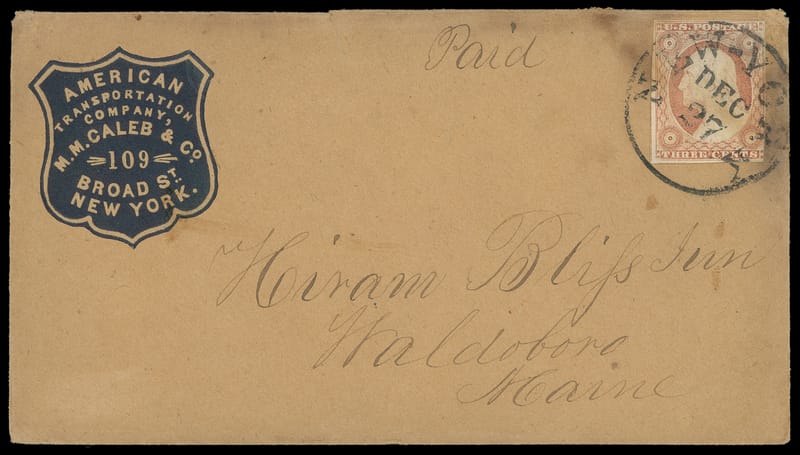 AMERICAN
TRANSPORTATION
COMPANY,
M.M. CALEB & Co.
109
BROAD ST.
NEW YORK.
Paid
U.S. POSTAGE
THREE CENTS
NEW-YORK
DEC
27
Hiram Bliſs Jun
Waldoboro
Maine